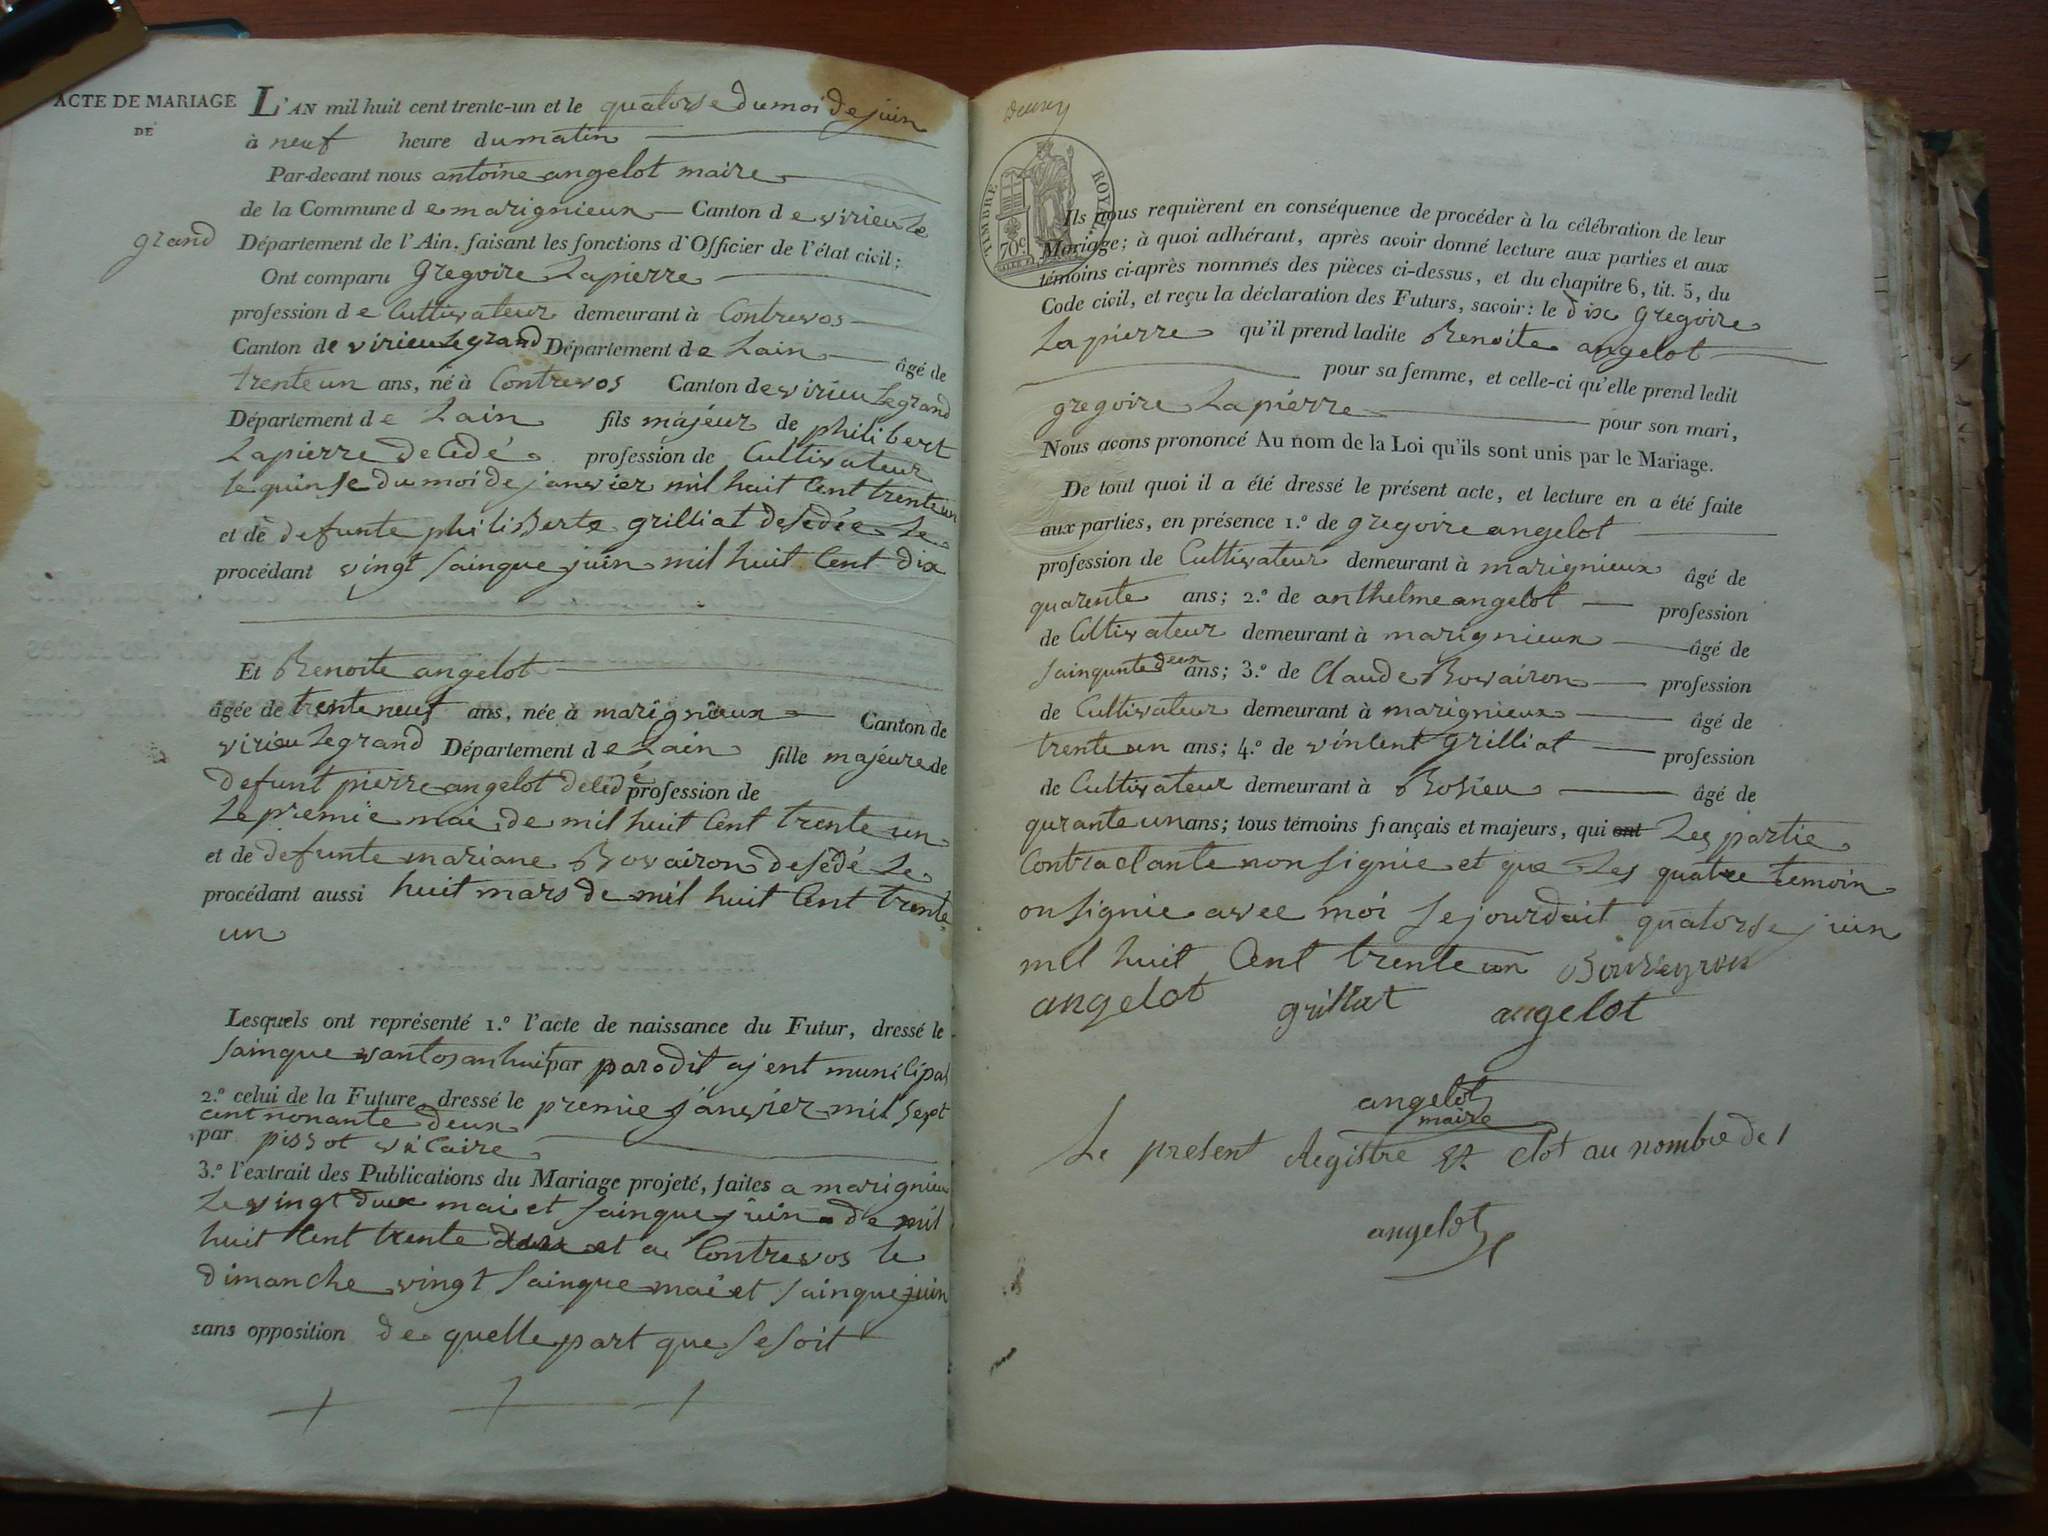 ACTE DE MARIAGE
DE
L'AN mil huit cent trente-un et le quatorse du moi de juin
à neuf heure du matin
Par-devant nous antoine angelot maire
de la Commune de marignieux Canton de virieu le
grand Département de l'Ain, faisant les fonctions d'Officier de l'état civil;
Ont comparu gregoire Lapierre
profession de Cultivateur demeurant à Contrevos
Canton de virieu Le grand Département de Lain âgé de
trente un ans, né à Contrevos Canton de virieu Le grand
Département de Lain fils majeur de philibert
Lapierre decedé profession de Cultivateur
le quinse du moi de janvier mil huit Cent trente un
et de defunte philiberte grilliat desedée Le
procédant vingt sainque juin mil huit Cent dix
Et Benoite angelot
âgée de trente neuf ans, née à marignieux Canton de
virieu Le grand Département de Lain fille majeure de
defunt pierre angelot decedé profession de
Le premie mai de mil huit Cent trente un
et de defunte mariane Bovairon desédé Le
procédant aussi huit mars de mil huit Cent trente
un
Lesquels ont représenté 1.º l'acte de naissance du Futur, dressé le
sainque vantos an huit par parodit ajent municipal
2.º celui de la Future, dressé le premie janvier mil sept
cent nonante deux
par pissot vicaire
3.º l'extrait des Publications du Mariage projeté, faites a marignieu
Le vingt dux mai et sainque juin de mil
huit Cent trente et a Contrevos le
dimanche vingt sainque mai et sainque juin
sans opposition de quelle part que se soit
TIMBRE ROYAL
70c
Ils nous requièrent en conséquence de procéder à la célébration de leur
Mariage; à quoi adhérant, après avoir donné lecture aux parties et aux
témoins ci-après nommés des pièces ci-dessus, et du chapitre 6, tit. 5, du
Code civil, et reçu la déclaration des Futurs, savoir: le dix gregoire
Lapierre qu'il prend ladite Benoite angelot
pour sa femme, et celle-ci qu'elle prend ledit
gregoire Lapierre pour son mari,
Nous avons prononcé Au nom de la Loi qu'ils sont unis par le Mariage.
De tout quoi il a été dressé le présent acte, et lecture en a été faite
aux parties, en présence 1.º de gregoire angelot
profession de Cultivateur demeurant à marignieux âgé de
quarente ans; 2.º de anthelme angelot profession
de Cultivateur demeurant à marignieux âgé de
sainqunte deux ans; 3.º de Claude Bovairon profession
de Cultivateur demeurant à marignieux âgé de
trente un ans; 4.º de vincent grilliat profession
de Cultivateur demeurant à Bosieu âgé de
qurante un ans; tous témoins français et majeurs, qui ont Les partie
Contractante non signie et que Les quatre temoin
on signie avec moi se jourdait quatorse juin
mil huit Cent trente un Bouveyron
angelot grillat angelot
angelot
maire
Le present Registre est clot au nombre de 1
angelot